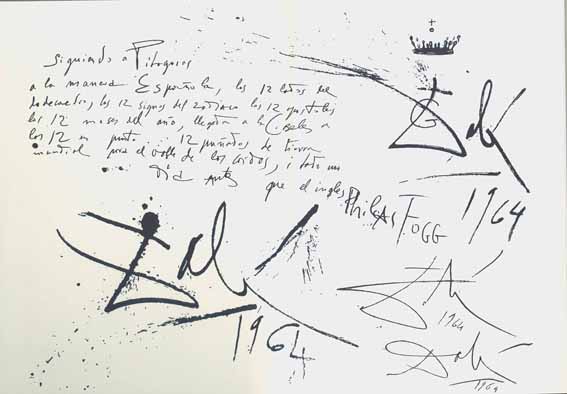 siguiendo a Pitagoras
a la manera Española, los 12 lados del
dodecaedro, los 12 signos del zodiaco los 12 apostoles
los 12 meses del año, llegada a la Cibeles a
los 12 en punto 12 puñados de tierra
mundial para el valle de los caidos, i todo un
Dia antes
que el ingles Phileas Fogg
Dalí
1964
Dalí
1964
Dalí
1964
Dalí
1964